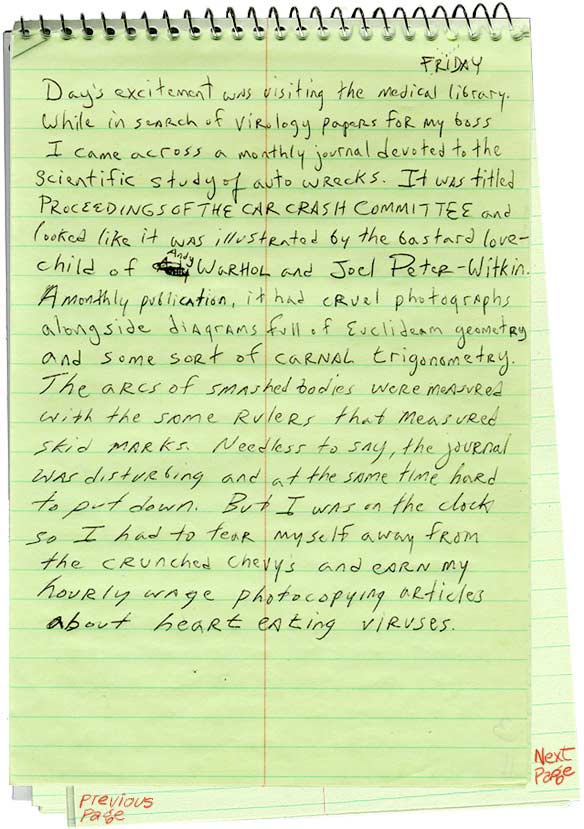 FRIDAY
Day's excitement was visiting the medical library.
While in search of virology papers for my boss
I came across a monthly journal devoted to the
scientific study of auto wrecks. It was titled
PROCEEDINGS OF THE CAR CRASH COMMITTEE and
looked like it was illustrated by the bastard love-
child of Andy WARHOL and Joel Peter-Witkin.
A monthly publication, it had cruel photographs
alongside diagrams full of Euclidean geometry
and some sort of CARNAL trigonometry.
The arcs of smashed bodies were measured
with the same Rulers that measured
skid marks. Needless to say, the journal
was disturbing and at the same time hard
to put down. But I was on the clock
so I had to tear myself away from
the crunched Chevy's and earn my
hourly wage photocopying articles
about heart eating viruses.
Next
Page
Previous
Page